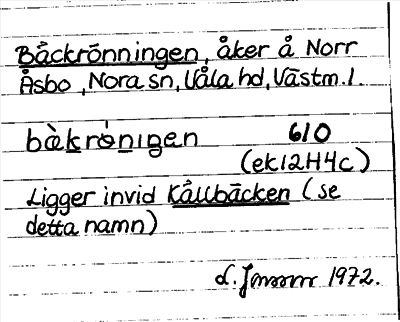 Bäckrönningen, åker å Norr
Åsbo, Nora sn, Våla hd, Västm.l.
bàkrónιgen 610
(ek12H4c)
Ligger invid Kållbäcken (se
detta namn)
d. 1972.